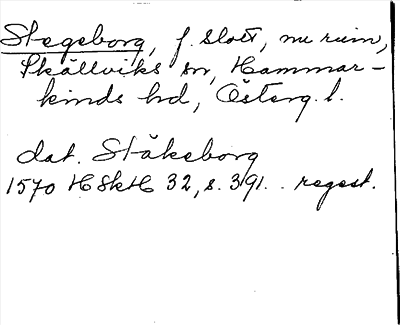 Stegeborg, f. slott, nu ruin,
Skällviks sn, Hammar-
kinds hd, Österg. l.
dat. Ståkeborg
1570 HSkH 32, s. 391. . regest.